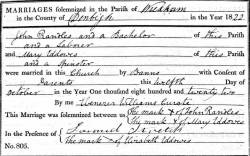 MARRIAGES solemnized in the Parish of Wrexham
in the County of Denbigh in the Year 1822
John Randles and a Bachelor of this Parish
and a Labourer
and Mary Udows of this Parish
and a Spinster
were married in this Church by Banns with Consent of
Parents this twelfth Day
October in the Year One thousand eight hundred and twenty two
By me Ebenezer Williams Curate
This Marriage was solemnized between us The mark × of John Randles
The mark × of Mary Udows
In the Presence of Samuel
The mark × of Elizabeth Udows
No. 805.